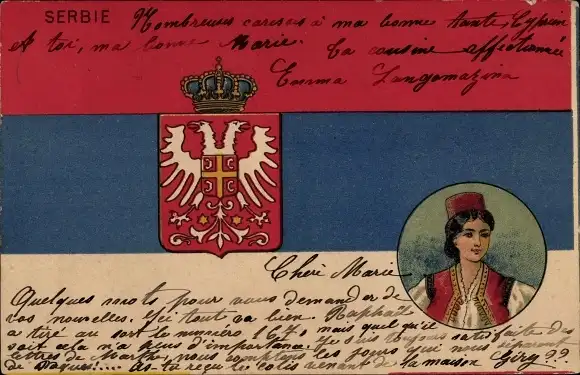 SERBIE
Nombreuses caresses à ma bonne tante,
Et toi, ma bonne Marie. Ta cousine affectionnée
Emma
Cheri Marie
Quelques mots pour vous demander de
vos nouvelles. Ici tout va bien. Raphaël
a tiré au sort le numéro 167, mais quel qu'il
soit cela n'a plus d'importance. Je suis toujours satisfaite des
lettres de Marthe, nous comptons les jours qui nous séparent
de Pâques!.... As-tu reçu le colis venant de la maison Giry??